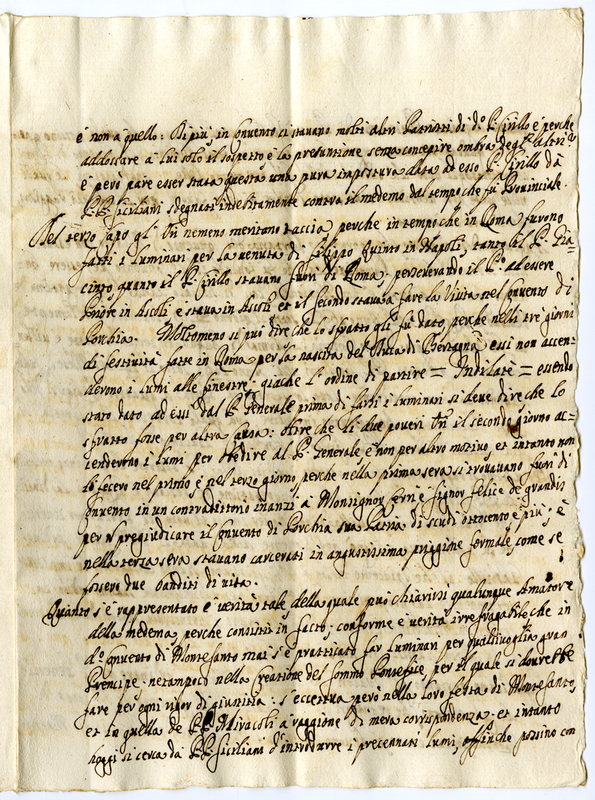 è non à quello: Di più in Convento ci stavano molti altri Patriotti di do. P. Cirillo è perche
addossare à lui solo il sospetto è la presuntione senza concepire ombra degl'altri?
è però pare esser stata questa una pura impostura data ad esso P. Cirillo dà
PP. Siciliani sdegnati indebitamente contra il medemo dal tempo che fù Provinciale.
Nel terzo capo gl' nemeno meritano taccia, perche in tempo che in Roma furono
fatti i luminari per la venuta di Filippo Quinto in Napoli, tanto il P. Gia=
cinto quanto il P. Cirillo stavano fuori di Roma; perseverando il Po. ad essere
Priore in Ascoli è stava in Ascoli et il secondo stava à fare la Visita nel Convento di
Porchia. Molto meno si può dire che lo sfratto gli fù dato, perche nelli tre giorni
di festività fatte in Roma per la nascita del Duca di Bertagna, essi non accen=
devono i lumi alle finestre; giache l'ordine di partire = Indilatè = essendo
stato dato ad essi dal P. Generale prima di farsi i luminari si deve dire che lo
sfratto fosse per altra causa: Oltre che li due poveri il secondo giorno ac=
cenderono i lumi per obedire al P. Generale è non per altro motivo, et intanto non
lo fecero nel primo è nel terzo giorno, perche nella prima sera si trovavano fuori di
Convento in un contradittorio inanzi à Monsignor è Signor Felice de Grandis
per non pregiudicare il Convento di Porchia sua Patria di scudi ottocento è più; è
nella terza sera stavano carcerati in angustissima priggione formale, come se
fossero due banditi di vita.
Quanto s'è rapresentato è verità tale, della quale può chiarirsi qualunque Amatore
della medema perche consiste in facto; conforme è verità irrefragabile che in
do. Convento di Montesanto mai s'è pratticato far luminari per qualsivoglia gran
Prencipe, ne tampoco nella creatione del Sommo Pontefice, per il quale si dourebbe
fare per ogni rigor di giustitia; s'eccettua però nella loro festa di Montesanto,
et in quella de PP. Miracoli à raggione di mera corrispondenza; et intanto
hoggi si cerca da PP. Siciliani d'introdurre i precennati lumi, affinche possino con